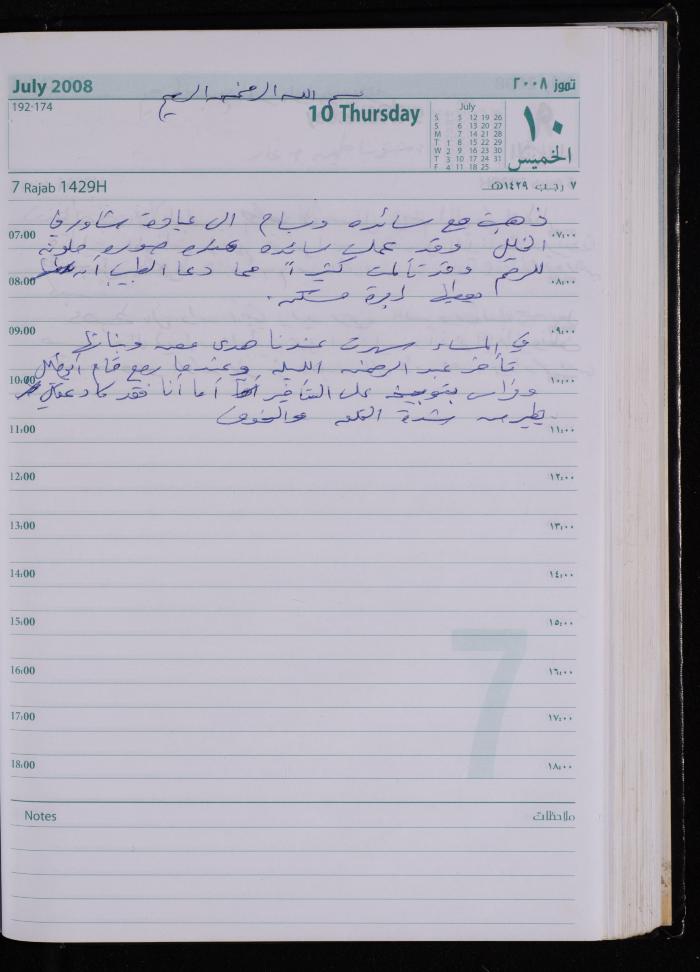 July 2008
تموز ٢٠٠٨
بسم الله الرحمن الرحيم
192-174
10 Thursday
July
S 5 12 19 26
S 6 13 20 27
M 7 14 21 28
T 1 8 15 22 29
W 2 9 16 23 30
T 3 10 17 24 31
F 4 11 18 25
١٠
الخميس
7 Rajab 1429H
٧ رجب ١٤٢٩هـ
ذهبت مع سائده وسماح الى عيادة في
07:00 ٠٧:٠٠
الخليل وقد عملت سائده صورة ملونة
للرحم وقد تألمت كثيراً مما دعا الطبيب
08:00 ٠٨:٠٠
ابرة مسكنه.
09:00 ٠٩:٠٠
في المساء سهرت عندنا هدى وبناتها
تأخر عبد الرحمن الليله وعندما رجع قام
10:00 ١٠:٠٠
وفراس بتوبيخه على التأخير أما أنا فقد كاد عقلي
يطير من شدة القلق والخوف
11:00 ١١:٠٠
12:00 ١٢:٠٠
13:00 ١٣:٠٠
14:00 ١٤:٠٠
15:00 ١٥:٠٠
7
16:00 ١٦:٠٠
17:00 ١٧:٠٠
18:00 ١٨:٠٠
Notes
ملاحظات